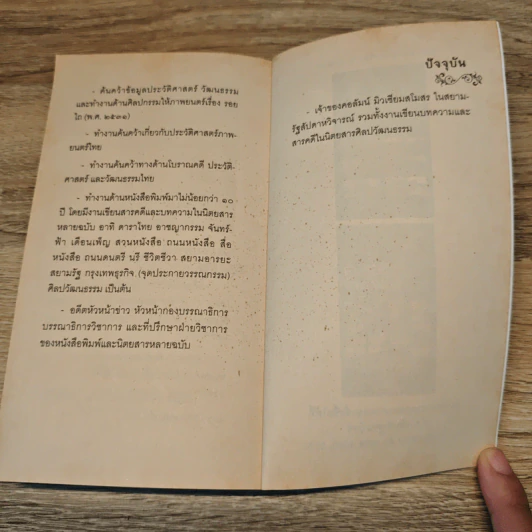 - ค้นคว้าข้อมูลประวัติศาสตร์ วัฒนธรรม
และทำงานด้านศิลปกรรมให้ภาพยนตร์เรื่อง รอย
ไถ (พ.ศ. ๒๕๓๑)
- ทำงานค้นคว้าเกี่ยวกับประวัติศาสตร์ภาพ-
ยนตร์ไทย
- ทำงานค้นคว้าทางด้านโบราณคดี ประวัติ-
ศาสตร์ และวัฒนธรรมไทย
- ทำงานด้านหนังสือพิมพ์มาไม่น้อยกว่า ๑๐
ปี โดยมีงานเขียนสารคดีและบทความในนิตยสาร
หลายฉบับ อาทิ ดาราไทย อาชญากรรม จันทร์-
ฟ้า เดือนเพ็ญ สวนหนังสือ ถนนหนังสือ สื่อ
หนังสือ ถนนดนตรี นรี ชีวิตชีวา สยามอารยะ
สยามรัฐ กรุงเทพธุรกิจ (จุดประกายวรรณกรรม)
ศิลปวัฒนธรรม เป็นต้น
- อดีตหัวหน้าข่าว หัวหน้ากองบรรณาธิการ
บรรณาธิการวิชาการ และที่ปรึกษาฝ่ายวิชาการ
ของหนังสือพิมพ์และนิตยสารหลายฉบับ
ปัจจุบัน
- เจ้าของคอลัมน์ มิวเซียมสโมสร ในสยาม-
รัฐสัปดาหวิจารณ์ รวมทั้งงานเขียนบทความและ
สารคดีในนิตยสารศิลปวัฒนธรรม